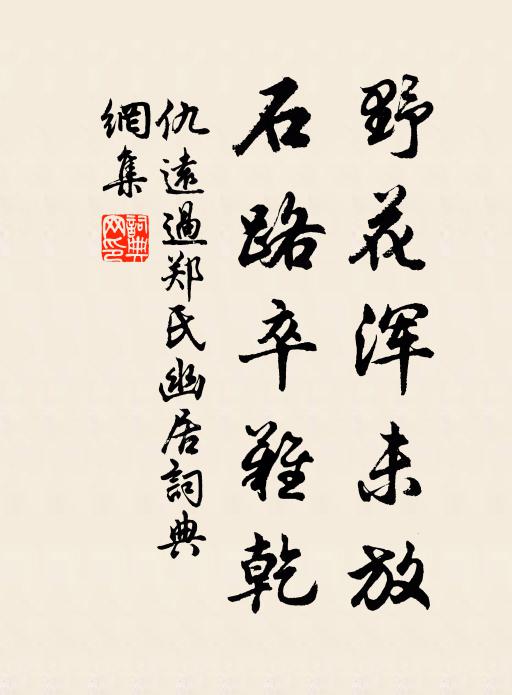 野花浑未放
石路卒難乾
仇遠過郑氏幽居詞典
網集
詞典
网印